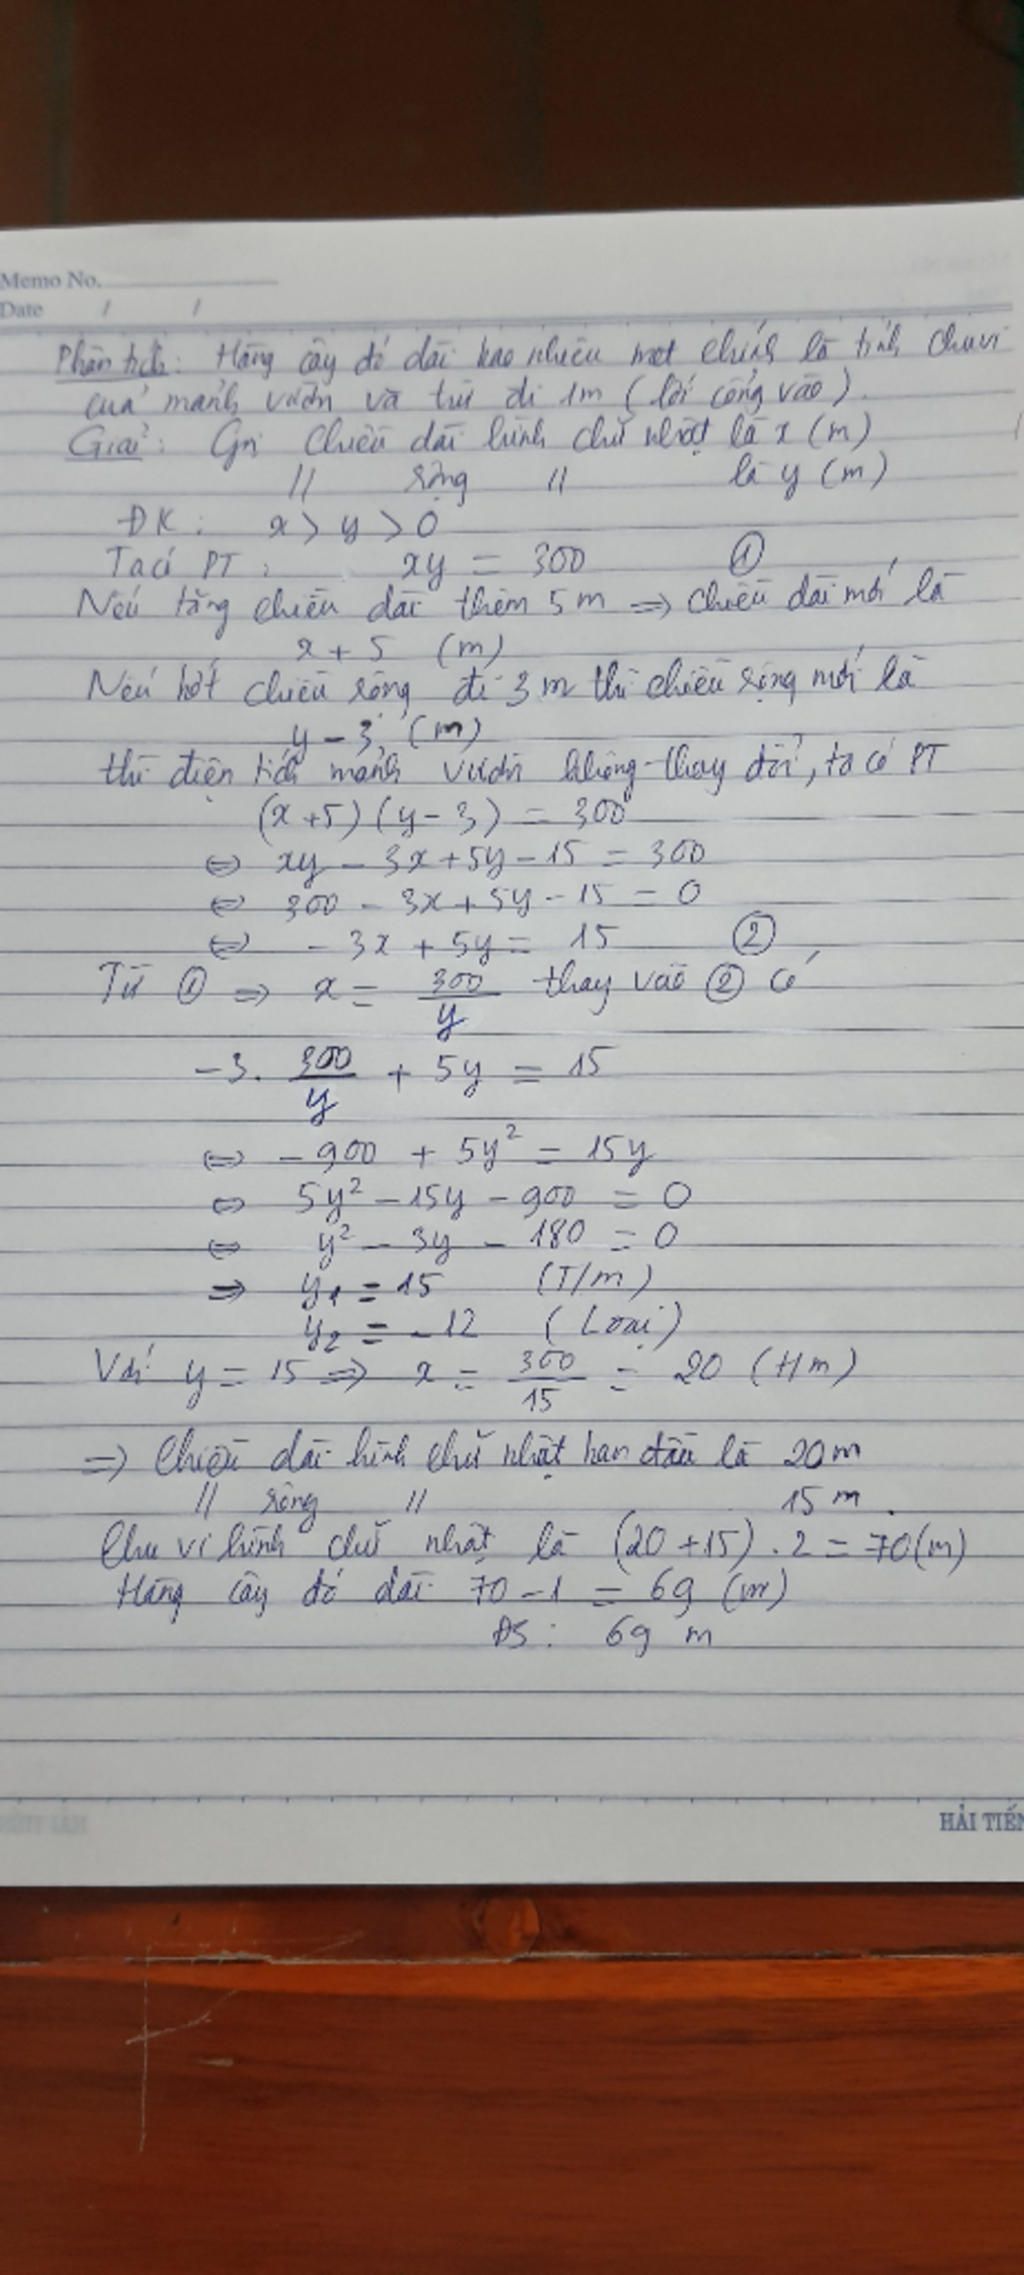 Memo No.
Date / /
Phân tích: Hàng cây đó dài bao nhiêu mét chính là tính chu vi
của mảnh vườn và trừ đi 1m (lối cổng vào).
Giải: Gọi chiều dài hình chữ nhật là x (m)
// rộng // là y (m)
ĐK: x > y > 0
Ta có PT: xy = 300 ①
Nếu tăng chiều dài thêm 5m => chiều dài mới là
x + 5 (m)
Nếu bớt chiều rộng đi 3m thì chiều rộng mới là
y - 3 (m)
thì diện tích mảnh vườn không thay đổi, ta có PT
(x+5)(y-3) = 300
<=> xy - 3x + 5y - 15 = 300
<=> 300 - 3x + 5y - 15 = 0
<=> - 3x + 5y = 15 ②
Từ ① => x = 300/y thay vào ② có
-3. 300/y + 5y = 15
<=> - 900 + 5y² = 15y
<=> 5y² - 15y - 900 = 0
<=> y² - 3y - 180 = 0
=> y₁ = 15 (T/m)
y₂ = -12 (Loại)
Với y = 15 => x = 300/15 = 20 (t/m)
=> Chiều dài hình chữ nhật ban đầu là 20m
// rộng // 15m.
Chu vi hình chữ nhật là (20+15).2 = 70(m)
Hàng cây đó dài 70-1 = 69 (m)
ĐS: 69 m
HẢI TIẾN